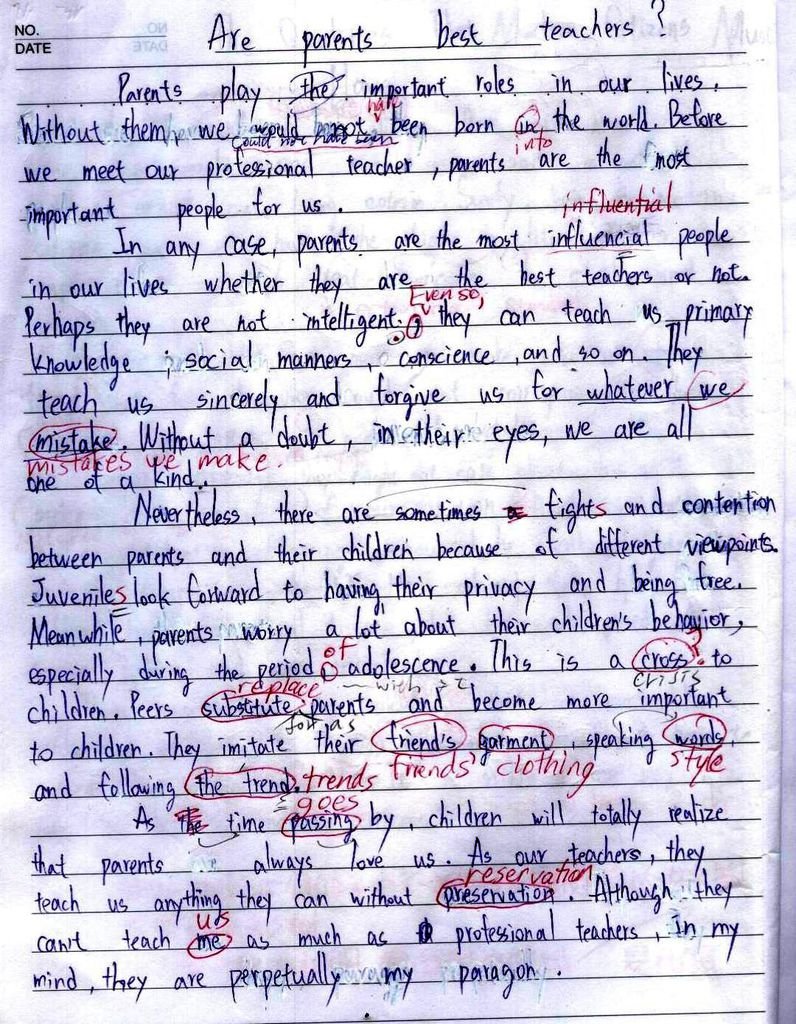 NO.
DATE
Are parents best teachers?
Parents play the important roles in our lives.
have
Without them, we would not been born in the world. Before
could not have been
into
we meet our professional teacher, parents are the most
important people for us.
influential
In any case, parents are the most influencial people
in our lives whether they are the best teachers or not.
Even so,
Perhaps they are not intelligent. they can teach us primary
knowledge ; social manners, conscience, and so on. They
teach us sincerely and forgive us for whatever we
mistake. Without a doubt, in their eyes, we are all
mistakes we make.
one of a kind.
Nevertheless, there are sometimes fights and contention
between parents and their children because of different viewpoints.
Juveniles look forward to having their privacy and being free.
Meanwhile, parents worry a lot about their children's behavior,
of
especially during the period adolescence. This is a cross to
?
crisis
replace with
children. Peers substitute parents and become more important
for as
to children. They imitate their friend's garment, speaking words,
friends' clothing style
and following the trend. trends
goes
As the time passing by, children will totally realize
that parents always love us. As our teachers, they
reservation
teach us anything they can without preservation. Although they
us
can't teach me as much as professional teachers, In my
mind, they are perpetually my paragon.